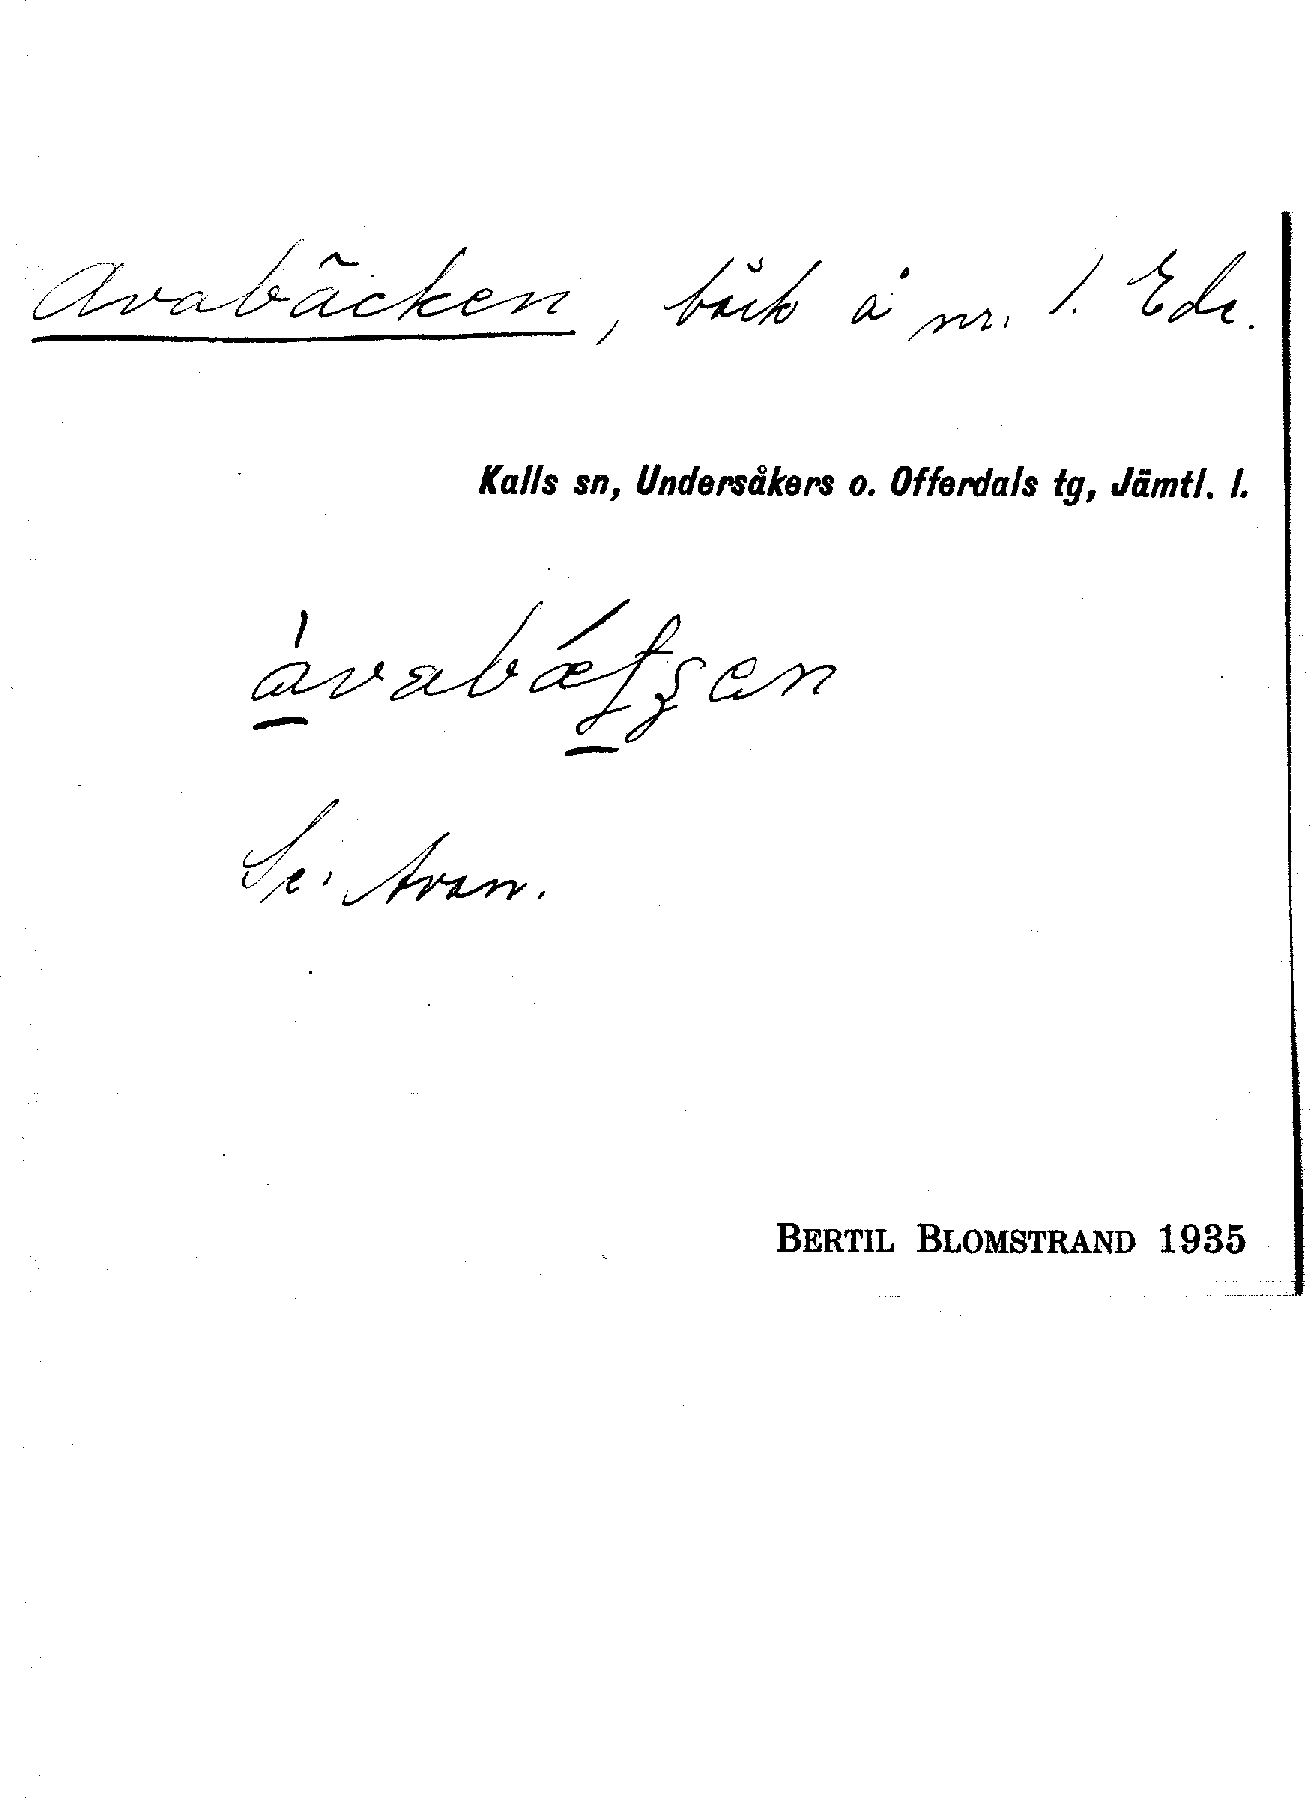 Avabäcken, bäck å nr. 1. Ede.
Kalls sn, Undersåkers o. Offerdals tg, Jämtl. l.
Se: Avan.
BERTIL BLOMSTRAND 1935